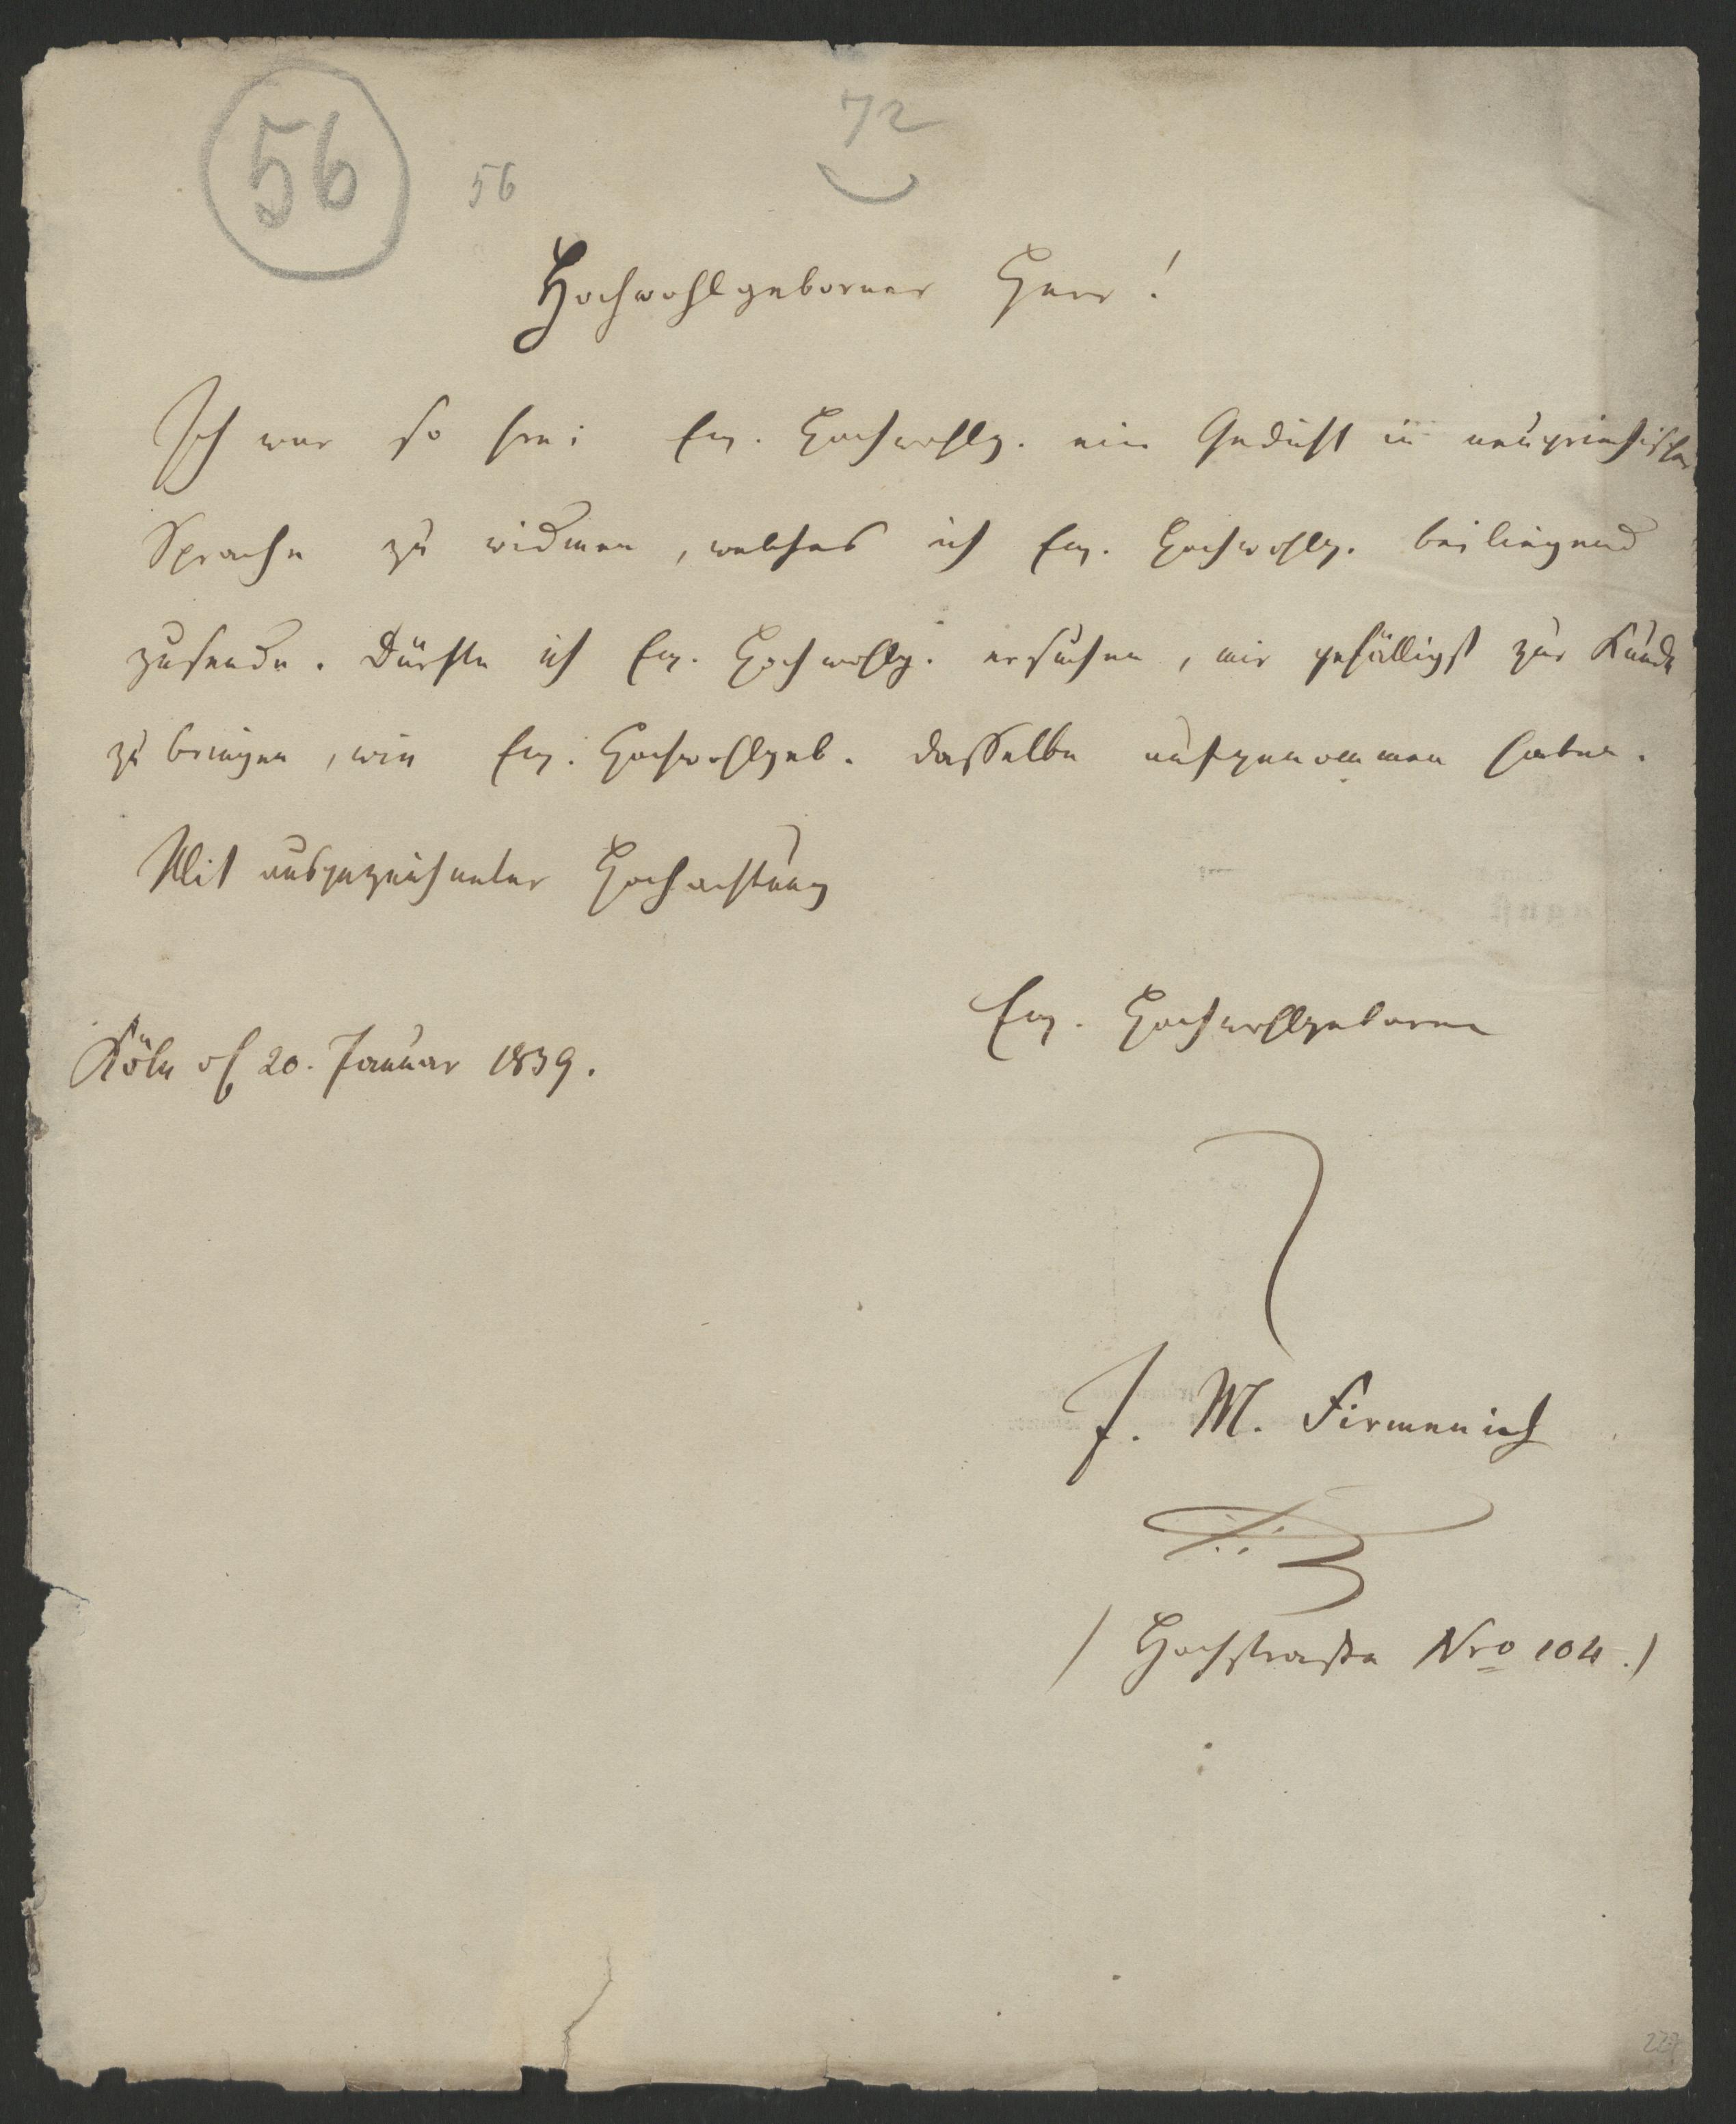 56
56
72
Hochwohlgeborner Herr!
Ich war so frei Ew. Hochwohlg. ein Gedicht in neugriechischer
Sprache zu widmen, welches ich Ew. Hochwohlg. beiliegend
zusende. Dürfte ich Ew. Hochwohlg. ersuchen, mir gefälligst zur Kunde
zu bringen, wie Ew. Hochwohlgeb. dasselbe aufgenommen haben.
Mit ausgezeichneter Hochachtung
Ew. Hochwohlgeboren
Köln 20. Januar 1839.
J. M. Firmenich
/ Hochstraße Nro 104./